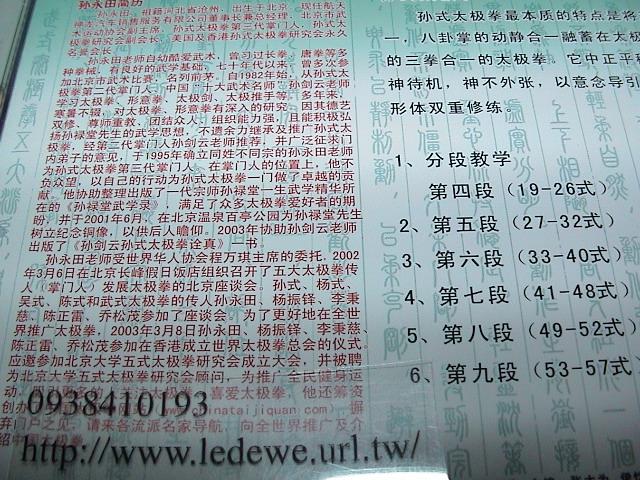 孙永田简历
木运动协会副主席,孙式太极拳第三代掌门人,孙式太
极拳研究会副会长,美国及香港孙式太极拳研究会永久
名誉会长。
孙永田老师自幼酷爱武术,曾习过长拳、唐拳等多
种拳械,有良好的武学基础。七十年代以来,曾多次参
加北京市武术比赛,名列前茅。自1982年始,从孙式太
极拳第二代掌门人、中国“十大武术名师”孙剑云老师
学习太极拳、形意拳、太极剑、太极推手等,多年来,
寒暑不辍,对太极拳、形意拳有深入的研究。因其德艺
双修、尊师重教、团结众人、组织能力强,且能积极弘
扬孙禄堂先生的武学思想,不遗余力继承及推广孙式太
极拳,经第二代掌门人孙剑云老师推荐,并广泛征求门
内弟子的意见,于1995年确立同姓不同宗的孙永田老师
为孙式太极拳第三代掌门人。在掌门人的位置上,他不
负众望,以自己的行动为孙式太极拳一门做了卓越的贡
献。他协助整理出版了一代宗师孙禄堂一生武学精华所
在的《孙禄堂武学录》,满足了众多太极拳爱好者的期
盼,并于2001年6月,在北京温泉百亭公园为孙禄堂先生
树立纪念铜像,以供后人瞻仰。2003年协助孙剑云老师
出版了《孙剑云孙式太极拳诠真》一书。
孙永田老师受世界华人协会程万琪主席的委托,2002
年3月6日在北京长峰假日饭店组织召开了五大太极拳传
人(掌门人)发展太极拳的北京座谈会。孙式、杨式、
吴式、陈式和武式太极拳的传人孙永田、杨振铎、李秉
慈、陈正雷、乔松茂参加了座谈会。为了更好地在全世
界推广太极拳,2003年3月8日孙永田、杨振铎、李秉慈、
陈正雷、乔松茂参加在香港成立世界太极拳总会的仪式。
应邀参加北京大学五式太极拳研究会成立大会,并被聘
为北京大学五式太极拳研究会顾问,为推广全民健身运
喜爱太极拳,他还筹资
创办 chinataijiquan.com),摒
弃门户之见,请来各流派名家导航,向全世界推广及介
绍中国太极拳。
孙式太极拳最本质的特点是将
一,八卦掌的动静合一融蓄在太极
的三拳合一的太极拳。它中正平和
神待机,神不外张,以意念导引
形体双重修练。
1、分段教学
第四段(19-26式)
2、第五段(27-32式)
3、第六段(33-40式)
4、第七段(41-48式)
5、第八段(49-52式)
6、第九段(53-57式)
0938410193
http://www.ledewe.url.tw/